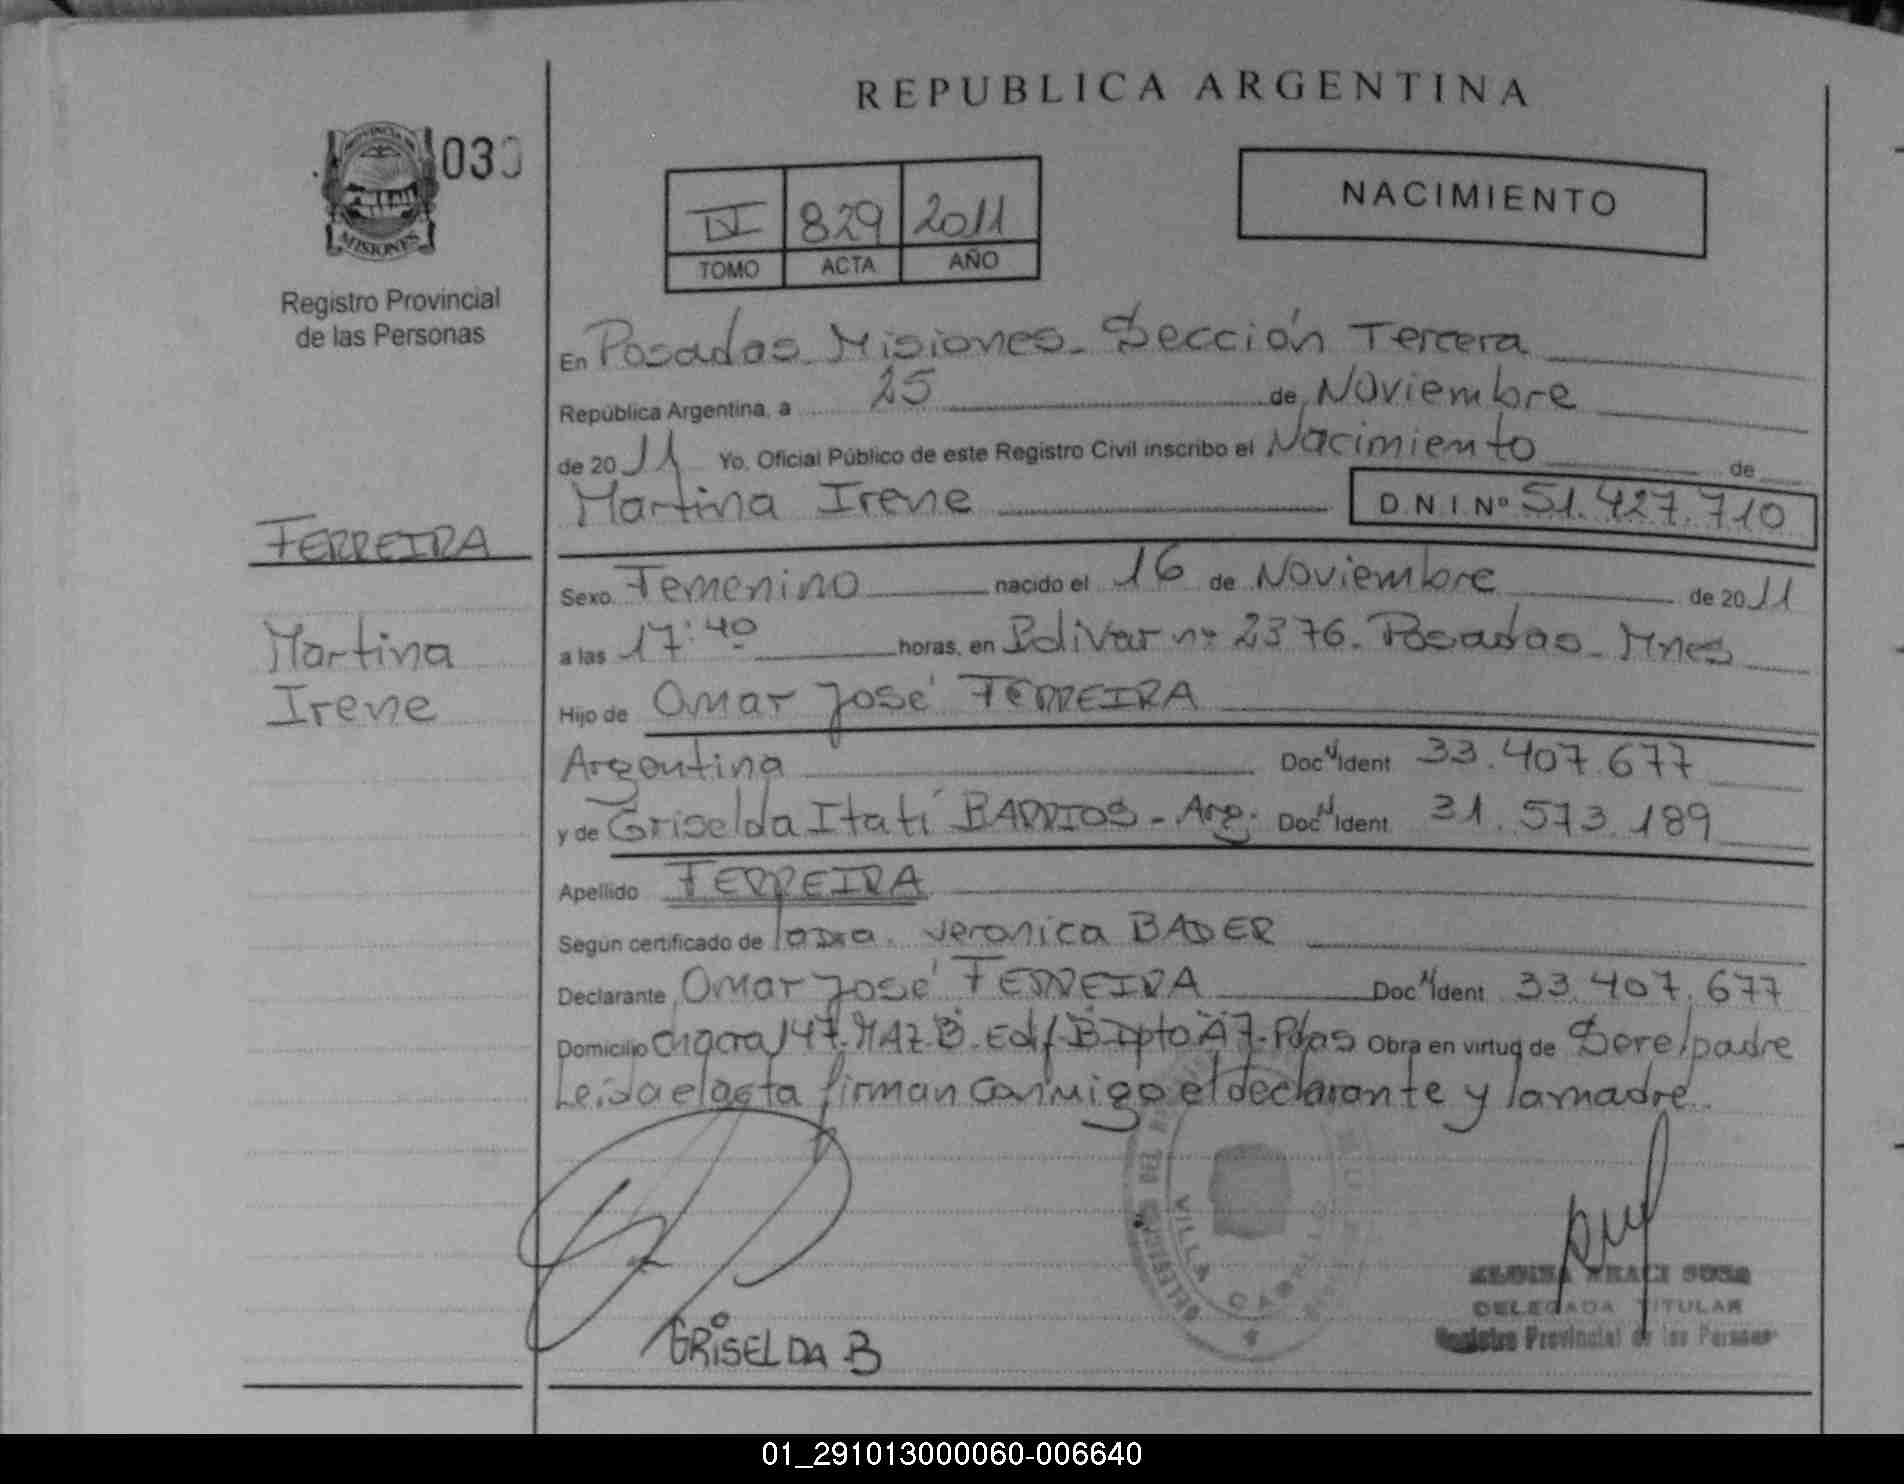 REPUBLICA ARGENTINA
PROVINCIA DE
MISIONES
030
Registro Provincial
de las Personas
IV 829 2011
TOMO ACTA AÑO
NACIMIENTO
En Posadas Misiones - Sección Tercera
República Argentina, a 25 de Noviembre
de 2011 Yo, Oficial Público de este Registro Civil inscribo el Nacimiento de
Martina Irene D.N.I. Nº 51.427.710
FERREIRA
Sexo Femenino nacido el 16 de Noviembre de 2011
Martina
a las 17:40 horas, en Bolivar nº 2376. Posadas - Mnes
Irene
Hijo de Omar José FERREIRA
Argentina Doc N Ident 33.407.677
y de Griselda Itatí BARRIOS - Arg. Doc N Ident 31.573.189
Apellido FERREIRA
Según certificado de la Dra. Veronica BADER
Declarante Omar José FERREIRA Doc N Ident 33.407.677
Domicilio chacra 147. MAZ B. Edif B Dpto A 7 - Pdas Obra en virtud de Ser el padre
Leida el acta firman conmigo el declarante y la madre.
VILLA CABELLO
GRISELDA B
ARACI SOSA
DELEGADA TITULAR
Registro Provincial de las Personas
01_291013000060-006640